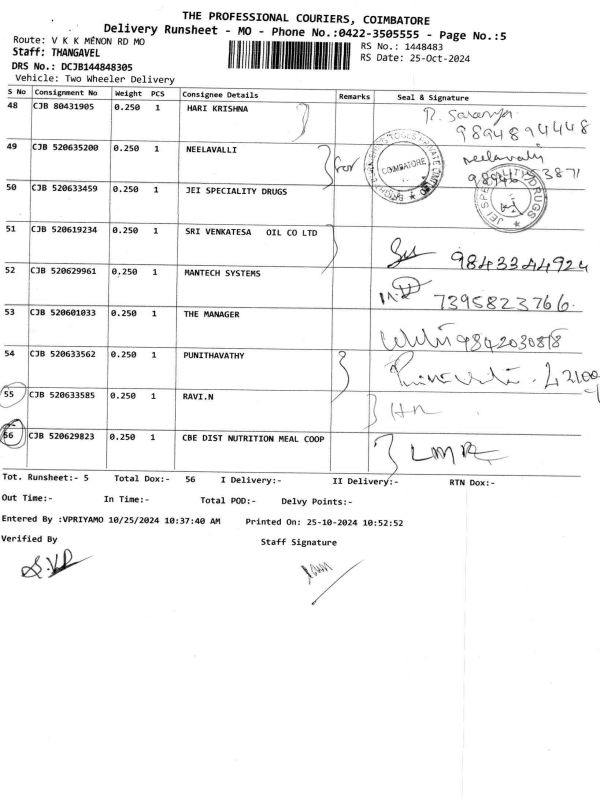 THE PROFESSIONAL COURIERS, COIMBATORE
Delivery Runsheet - MO - Phone No.:0422-3505555 - Page No.:5
Route: V K K MENON RD MO
RS No.: 1448483
Staff: THANGAVEL
RS Date: 25-Oct-2024
DRS No.: DCJB144848305
Vehicle: Two Wheeler Delivery
S No Consignment No Weight PCS Consignee Details Remarks Seal & Signature
48 CJB 80431905 0.250 1 HARI KRISHNA R. Saranya
9894894448
49 CJB 520635200 0.250 1 NEELAVALLI for COIMBATORE Neelavaly
50 CJB 520633459 0.250 1 JEI SPECIALITY DRUGS JEI SPECIALITY DRUGS
51 CJB 520619234 0.250 1 SRI VENKATESA OIL CO LTD 9843344924
52 CJB 520629961 0.250 1 MANTECH SYSTEMS 7395823766
53 CJB 520601033 0.250 1 THE MANAGER
54 CJB 520633562 0.250 1 PUNITHAVATHY
55 CJB 520633585 0.250 1 RAVI.N
56 CJB 520629823 0.250 1 CBE DIST NUTRITION MEAL COOP
Tot. Runsheet:- 5 Total Dox:- 56 I Delivery:- II Delivery:- RTN Dox:-
Out Time:- In Time:- Total POD:- Delvy Points:-
Entered By :VPRIYAMO 10/25/2024 10:37:40 AM Printed On: 25-10-2024 10:52:52
Verified By Staff Signature